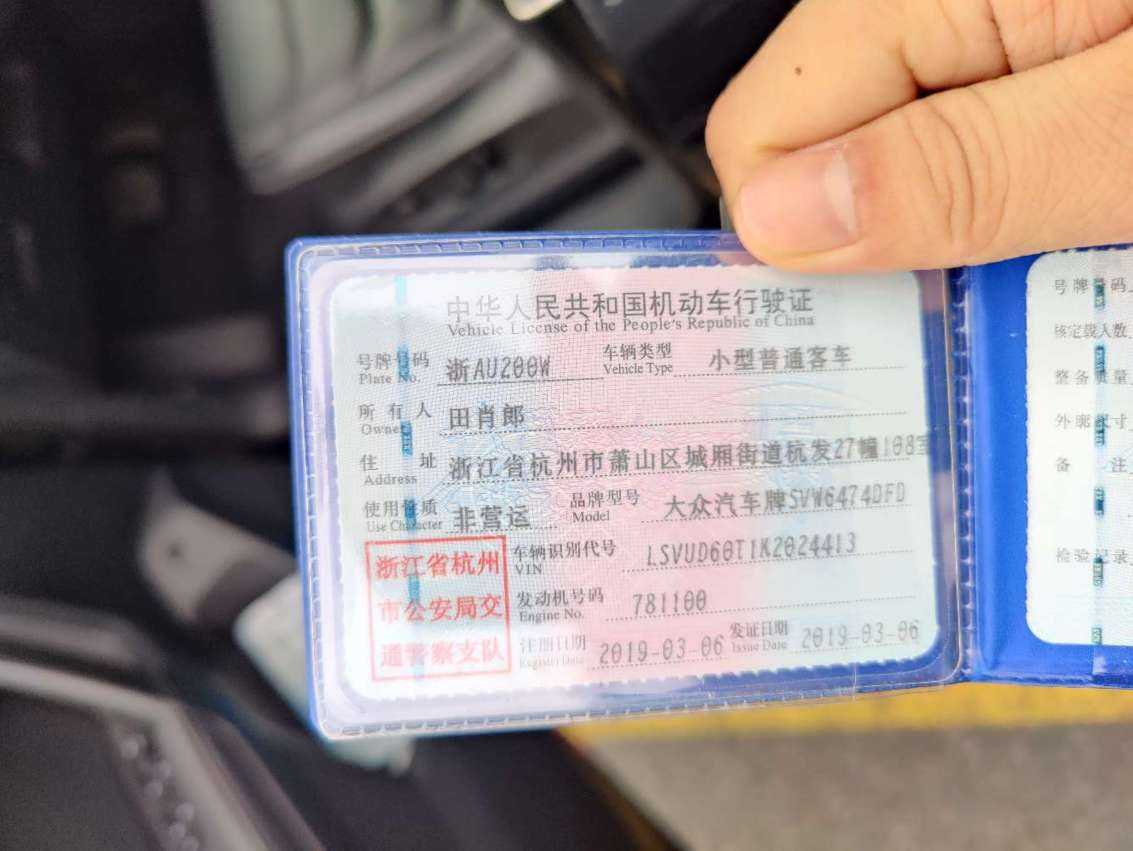 中华人民共和国机动车行驶证
Vehicle License of the People's Republic of China
号牌号码 浙AU200W 车辆类型 小型普通客车
Plate No. Vehicle Type
所有人 田肖郎
Owner
住址 浙江省杭州市萧山区城厢街道杭发27幢108室
Address
使用性质 非营运 品牌型号 大众汽车牌SVW6474DFD
Use Character Model
浙江省杭州
市公安局交
通警察支队
车辆识别代号 LSVUD60T1K2024413
VIN
发动机号码 781100
Engine No.
注册日期 2019-03-06 发证日期 2019-03-06
Register Date Issue Date
号牌号码
核定载人数
整备质量
外廓尺寸
备注
检验记录